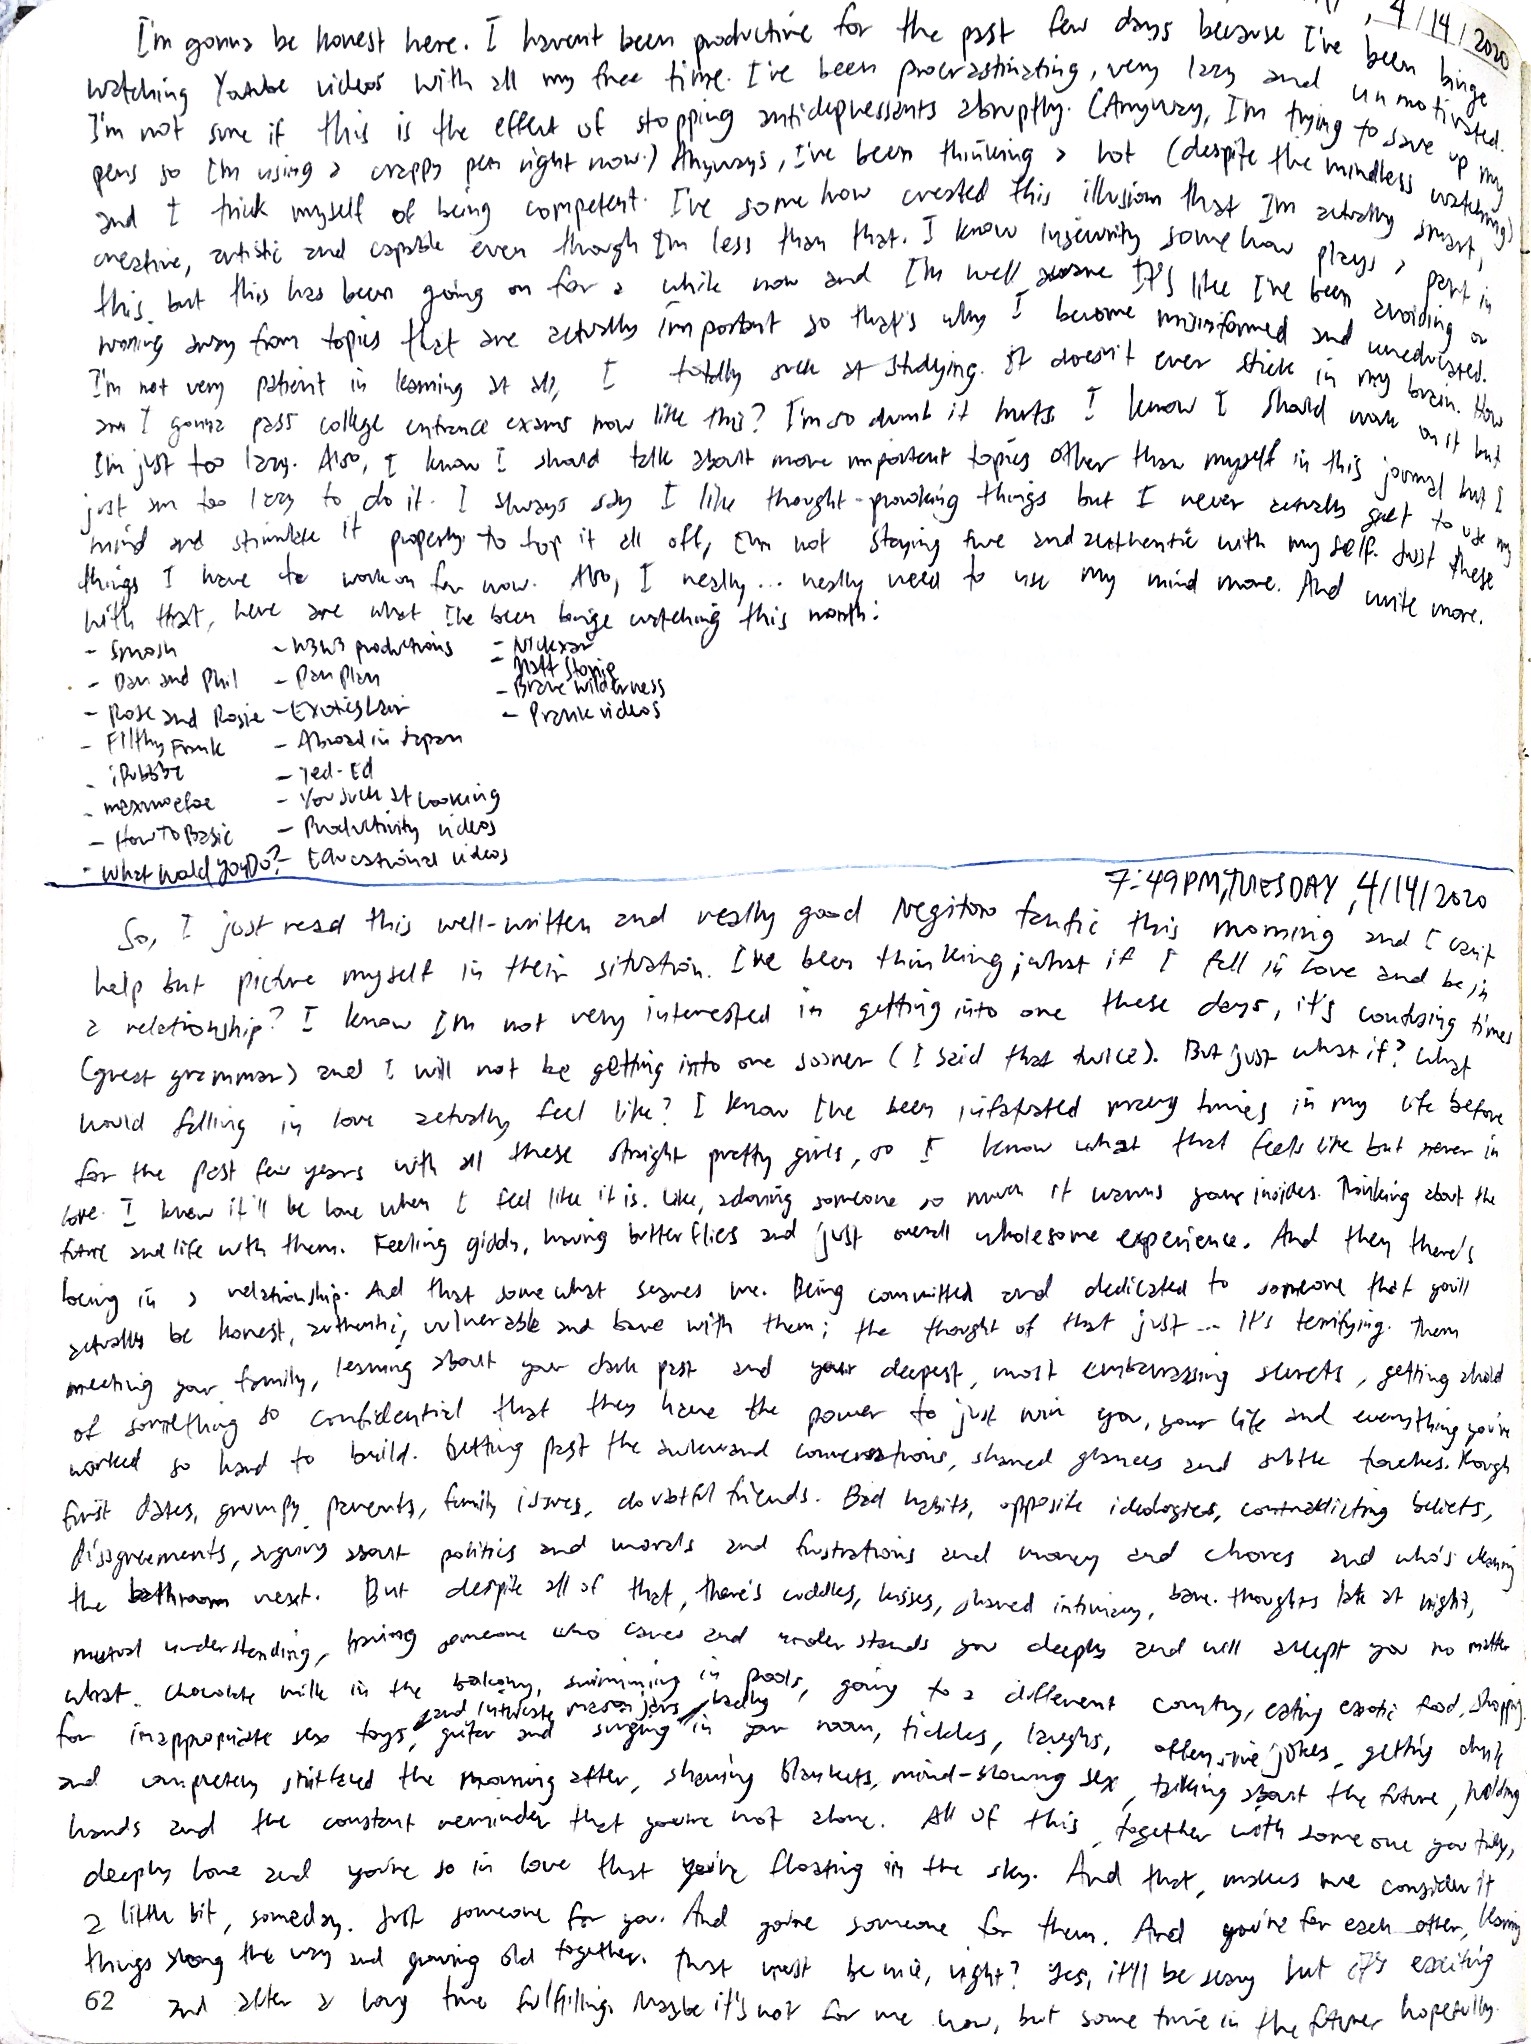 , 4/14/2020
I'm gonna be honest here. I havent been productive for the past few days because I've been binge
watching Youtube videos with all my free time. I've been procrastinating, very lazy and unmotivated.
I'm not sure if this is the effect of stopping antidepressants abruptly. (Anyway, I'm trying to save up my
pens so I'm using a crappy pen right now.) Anyways, I've been thinking a lot (despite the mindless watching)
and I trick myself of being competent. I've somehow created this illusion that I'm actually smart,
creative, artistic and capable even though I'm less than that. I know insecurity somehow plays a part in
this, but this has been going on for a while now and I'm well aware. It's like I've been avoiding or
running away from topics that are actually important so that's why I become misinformed and uneducated.
I'm not very patient in learning at all, I totally suck at studying. It doesn't ever stick in my brain. How
am I gonna pass college entrance exams now like this? I'm so dumb it hurts. I know I should work on it but
I'm just too lazy. Also, I know I should talk about more important topics other than myself in this journal but I
just am too lazy to do it. I always say I like thought-provoking things but I never actually get to use my
mind and stimulate it properly. To top it all off, I'm not staying true and authentic with myself. Just these
things I have to work on for now. Also, I really... really need to use my mind more. And write more.
With that, here are what I've been binge watching this month:
- Smosh - W3W3 productions - Nickxar
- Dan and Phil - Pan Plan - Matt Stonie
- Rose and Rosie - Exotics Lair - Brave wilderness
- Filthy Frank - Abroad in Japan - Prank videos
- iDubbbz - Ted-Ed
- maxmoefoe - You suck at cooking
- HowToBasic - Productivity videos
- What Would You Do? - Educational videos
7:49PM, TUESDAY, 4/14/2020
So, I just read this well-written and really good Negitoro fanfic this morning and I can't
help but picture myself in their situation. I've been thinking, what if I fell in love and be in
a relationship? I know I'm not very interested in getting into one these days, it's confusing times
(great grammar) and I will not be getting into one sooner (I said that twice). But just what if? What
would falling in love actually feel like? I know I've been infatuated many times in my life before
for the past few years with all these straight pretty girls, so I know what that feels like but never in
love. I knew it'll be love when I feel like it is. Like, adoring someone so much it warms your insides. Thinking about the
future and life with them. Feeling giddy, having butterflies and just overall wholesome experience. And then there's
being in a relationship. And that somewhat scares me. Being committed and dedicated to someone that you'll
actually be honest, authentic, vulnerable and bare with them; the thought of that just... It's terrifying. Them
meeting your family, learning about your dark past and your deepest, most embarrassing secrets, getting ahold
of something so confidential that they have the power to just ruin you, your life and everything you've
worked so hard to build. Getting past the awkward conversations, shared glances and subtle touches. Rough
first dates, grumpy parents, family issues, doubtful friends. Bad habits, opposite ideologies, contradicting beliefs,
disagreements, arguing about politics and morals and frustrations and money and chores and who's cleaning
the bathroom next. But despite all of that, there's cuddles, kisses, shared intimacy, bare thoughts late at night,
mutual understanding, having someone who cares and understands you deeply and will accept you no matter
what. Chocolate milk in the balcony, swimming in pools, going to a different country, eating exotic food, shopping
for inappropriate sex toys and intricate mason jars, guitar and singing in your room, tickles, laughs, offensive jokes, getting drunk
and completely shitfaced the morning after, sharing blankets, mind-blowing sex, talking about the future, holding
hands and the constant reminder that you're not alone. All of this, together with someone you truly,
deeply love and you're so in love that you're floating in the sky. And that, makes me consider it
a little bit, someday. Just someone for you. And you're someone for them. And you're for each other, learning
things along the way and growing old together. That must be nice, right? Yes, it'll be scary but it's exciting
and after a long time fulfilling. Maybe it's not for me now, but some time in the future hopefully.
62